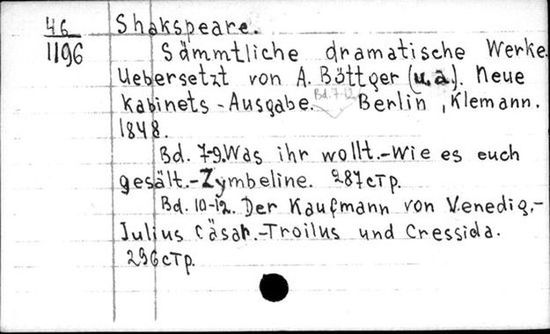 46
1196
Shakspeare.
Sämmtliche dramatische Werke.
Uebersetzt von A. Böttger (u.a.). Neue
Kabinets-Ausgabe. Bd. 7-12 Berlin, Klemann.
1848.
Bd. 7-9. Was ihr wollt.-Wie es euch
gesält.-Zymbeline. 287 стр.
Bd. 10-12. Der Kaufmann von Venedig.-
Julius Cäsar.-Troilus und Cressida.
296 стр.